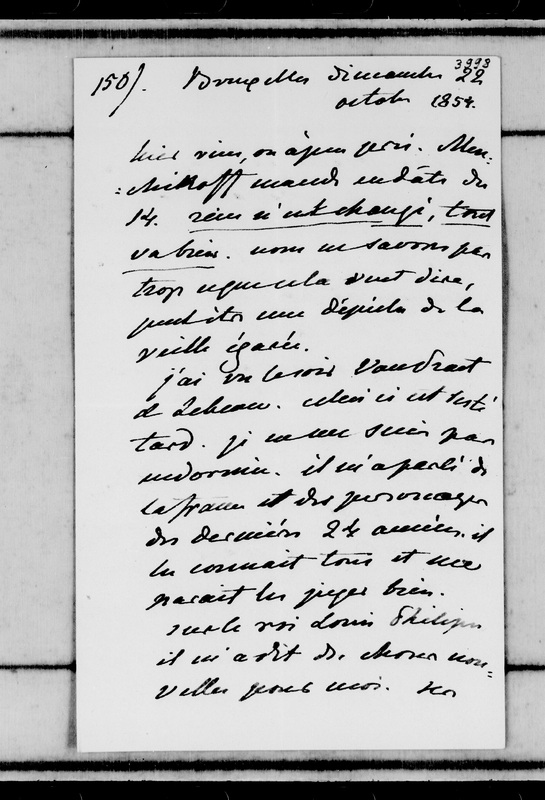 3998
150). Bruxelles dimanche 22
octobre 1854.
hier rien, ou à peu près. Men-
:chikoff mande en date du
14. rien n'est changé, tout
va bien. nous ne savons pas
trop ce que cela veut dire,
peut être une dépêche de la
veille égarée.
j'ai vu le soir Vandraet
et Lebeau. celui ci est resté
tard. je ne me suis pas
endormie. il m'a parlé de
la france et des personnages
des dernières 24 années. il
les connait tous et me
parait les juger bien.
sur le roi Louis Philippe
il m'a dit des choses nou=
velles pour moi.